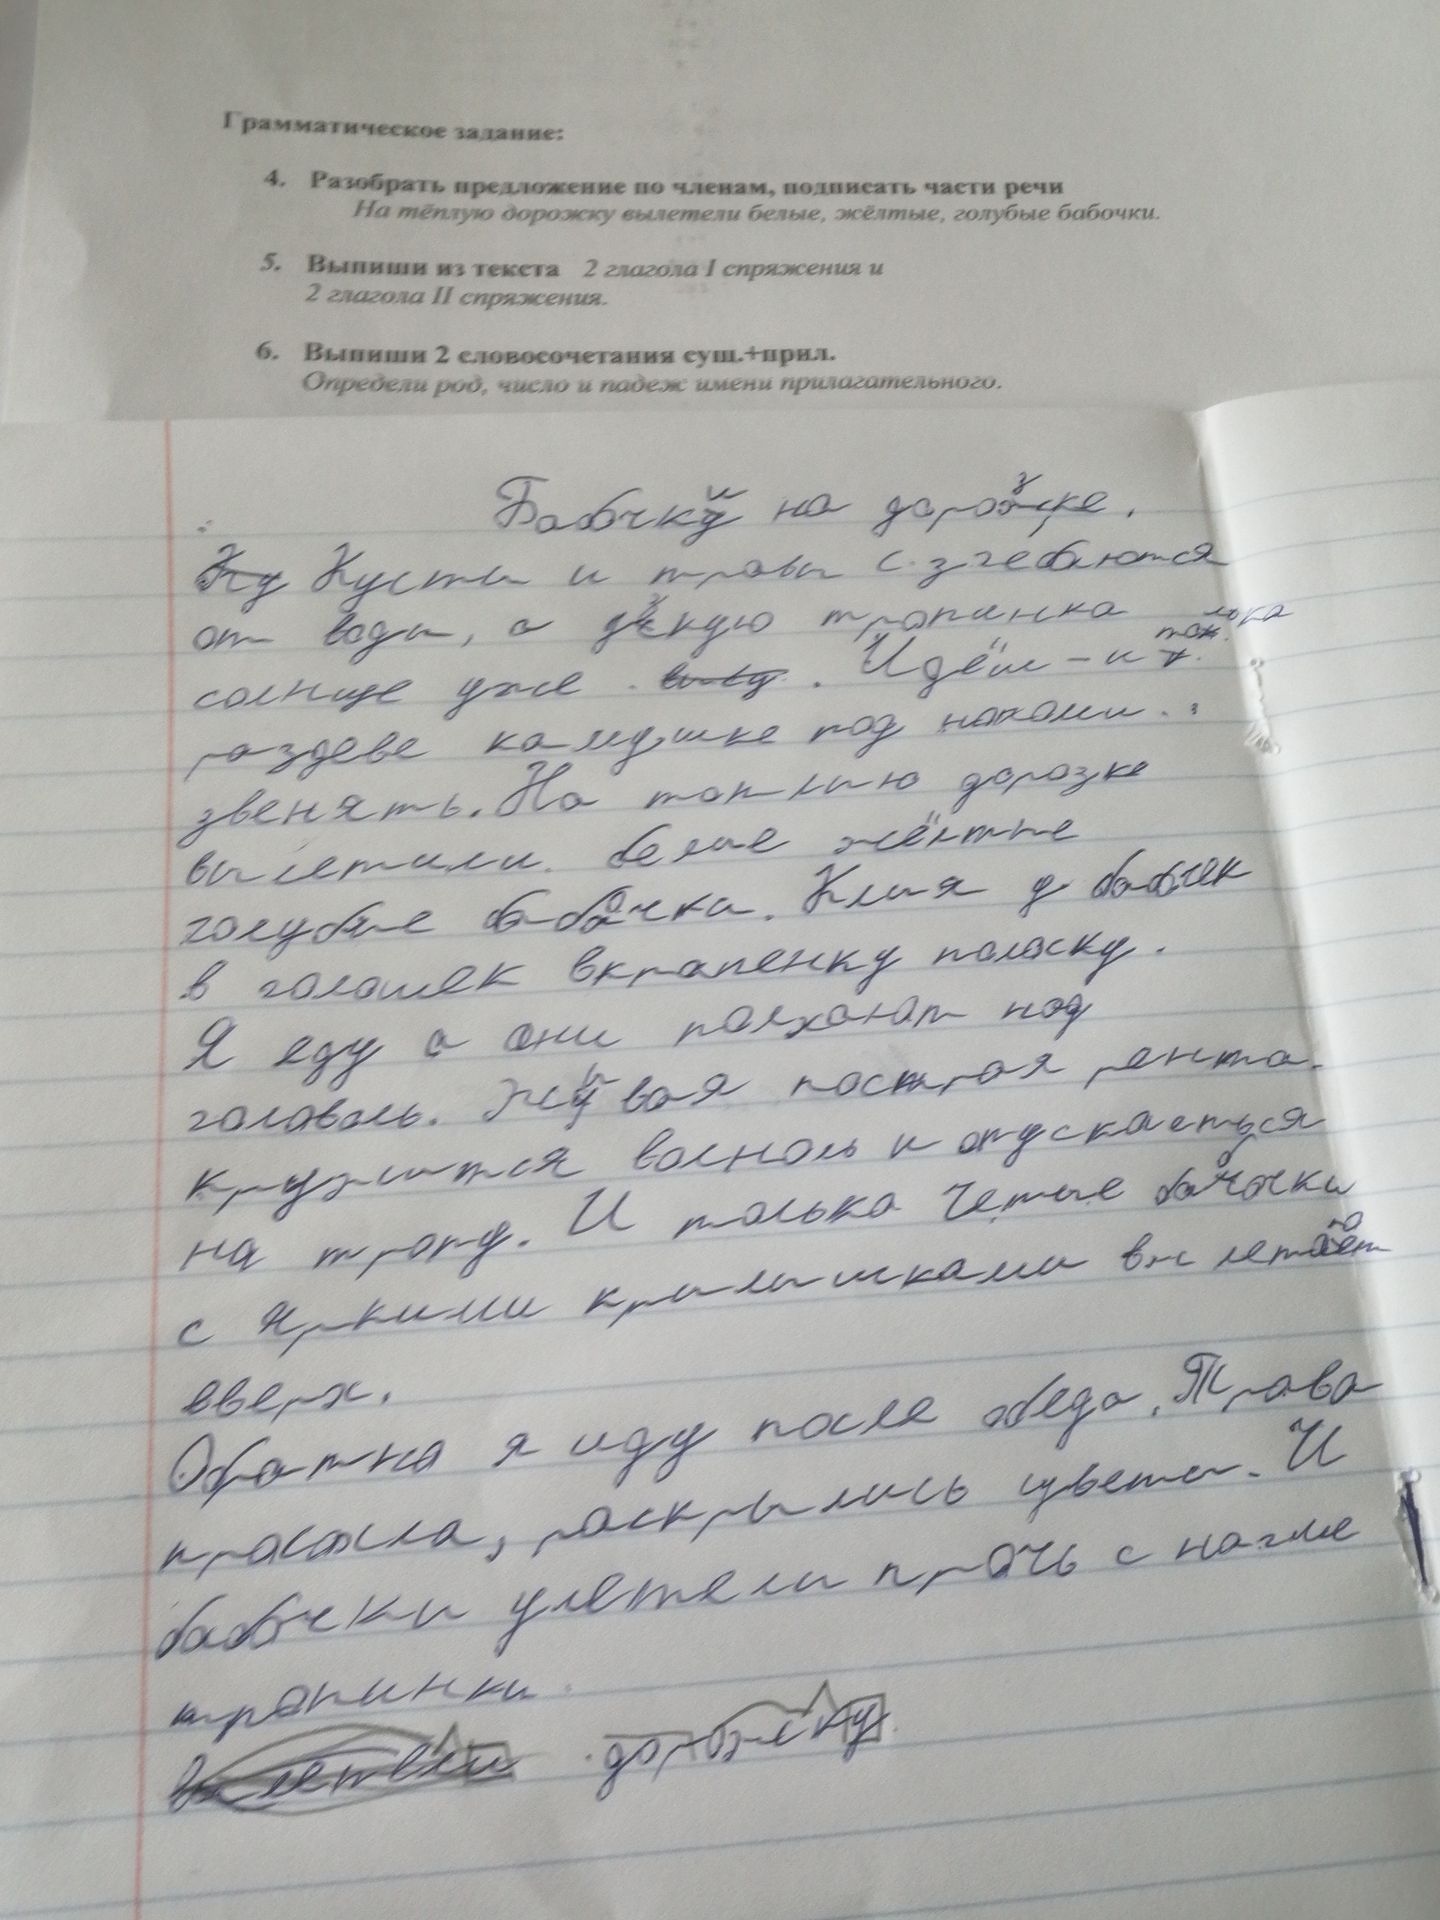 Грамматическое задание:
4. Разобрать предложение по членам, подписать части речи
На тёплую дорожку вылетели белые, жёлтые, голубые бабочки.
5. Выпиши из текста 2 глагола I спряжения и
2 глагола II спряжения.
6. Выпиши 2 словосочетания сущ.+прил.
Определи род, число и падеж имени прилагательного.
Бабочки на дорозке.
Кусты и травы с згебаются
от воды, а узкую тропинка
солнце уже . Идёш – и только
раздеве камушке под нагами
звенять. На топлию дорозке
вылетили. белые жёлтые
голубые бабочки. Клия у бабочек
в голошек вкрапенку полоску.
Я еду а они порхают над
головоль. Живая построя рента.
кружится волноль и опускаеться
на тропу. И только четые бабочки
с яркими крылышками вылетают
вверх.
Обратна я иду после обеда. Трава
прасохла, раскрылись цветы. И
бабочки улетели прочь с нагме
тропинки.
дорожку